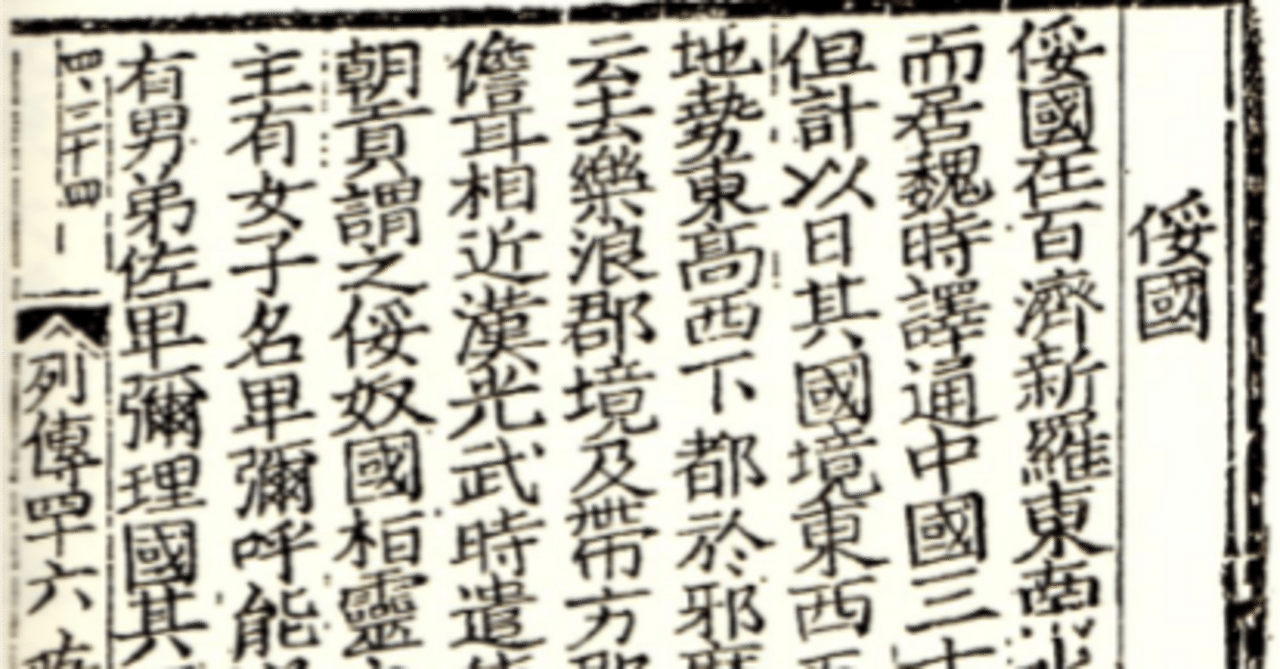 俀國
俀國在百濟新羅東南水
而居魏時譯通中國三十
但計以日其國境東西
地勢東高西下都於邪
云去樂浪郡境及帶方郡
儋耳相近漢光武時遣使
朝貢謂之俀奴國桓靈
主有女子名卑彌呼能
有男弟佐卑彌理國其
四、三十四
列傳四十六